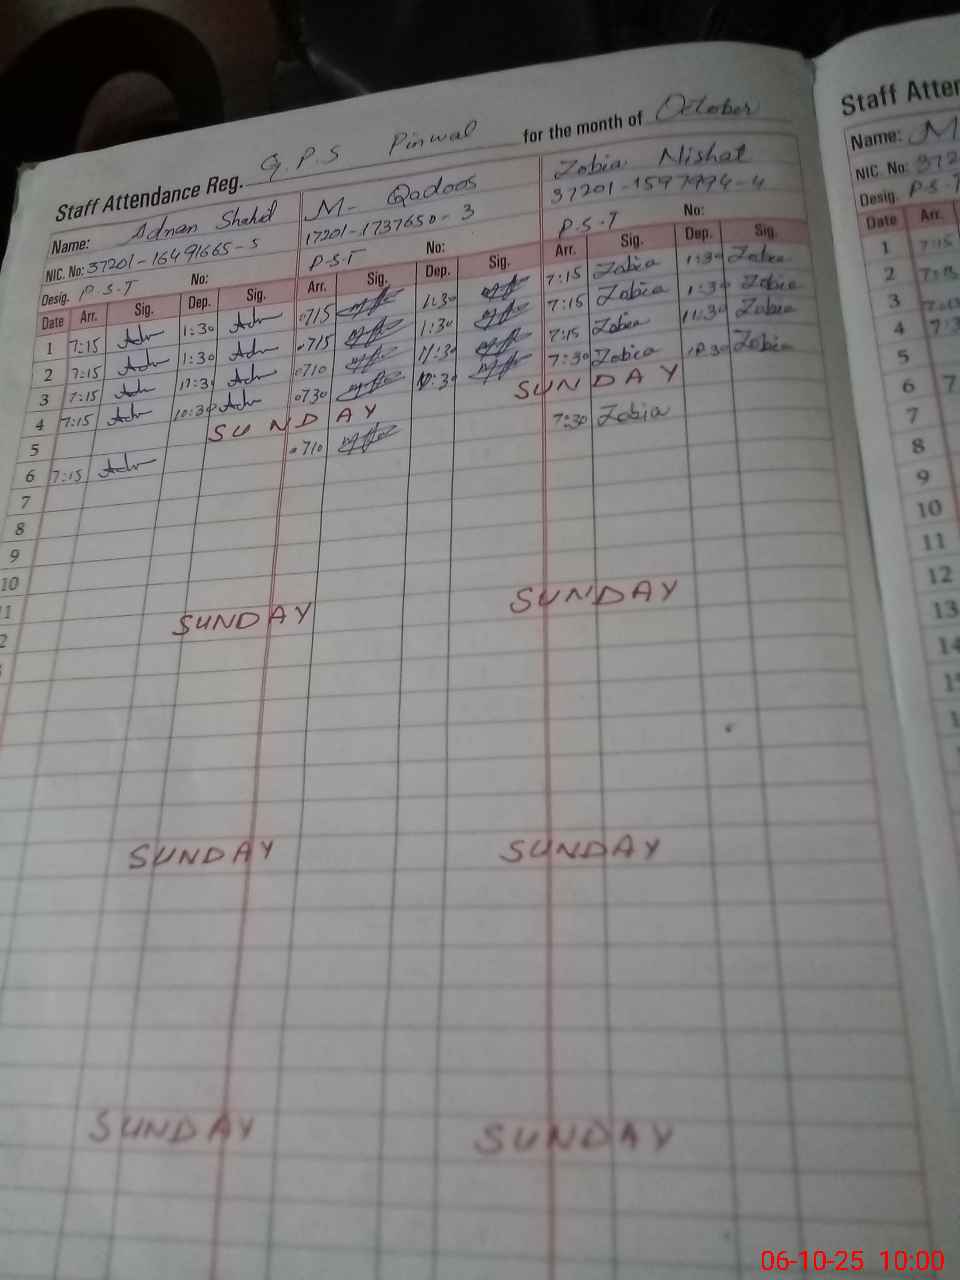 Staff Attendance Reg. G.P.S Pinwal for the month of October
Name: Adnan Shahid M- Qadoos Zobia Nishat
NIC. No: 37201-16491665-5 17201-1737650-3 37201-1597994-4
Desig. P.S.T No: P.S.T No: P.S.T No:
Date Arr. Sig. Dep. Sig. Arr. Sig. Dep. Sig. Arr. Sig. Dep. Sig.
1 7:15 Adn 1:30 Adn 0715 1:30 7:15 Zobia 1:30 Zobia
2 7:15 Adn 1:30 Adn 0715 1:30 7:15 Zobia 1:30 Zobia
3 7:15 Adn 11:30 Adn 0710 11:30 7:15 Zobia 11:30 Zobia
4 7:15 Adn 10:30 Adn 0730 10:30 7:30 Zobia 10:30 Zobia
5 SUNDAY SUNDAY
6 7:15 Adn 0710 7:30 Zobia
7
8
9
10
11
12
SUNDAY SUNDAY
SUNDAY SUNDAY
SUNDAY SUNDAY
Staff Atten
Name: M
NIC. No: 372
Desig. P.S.T
Date Arr.
1 7:15
2 7:15
3
4
5
6 7
7
8
9
10
11
12
13
14
06-10-25 10:00